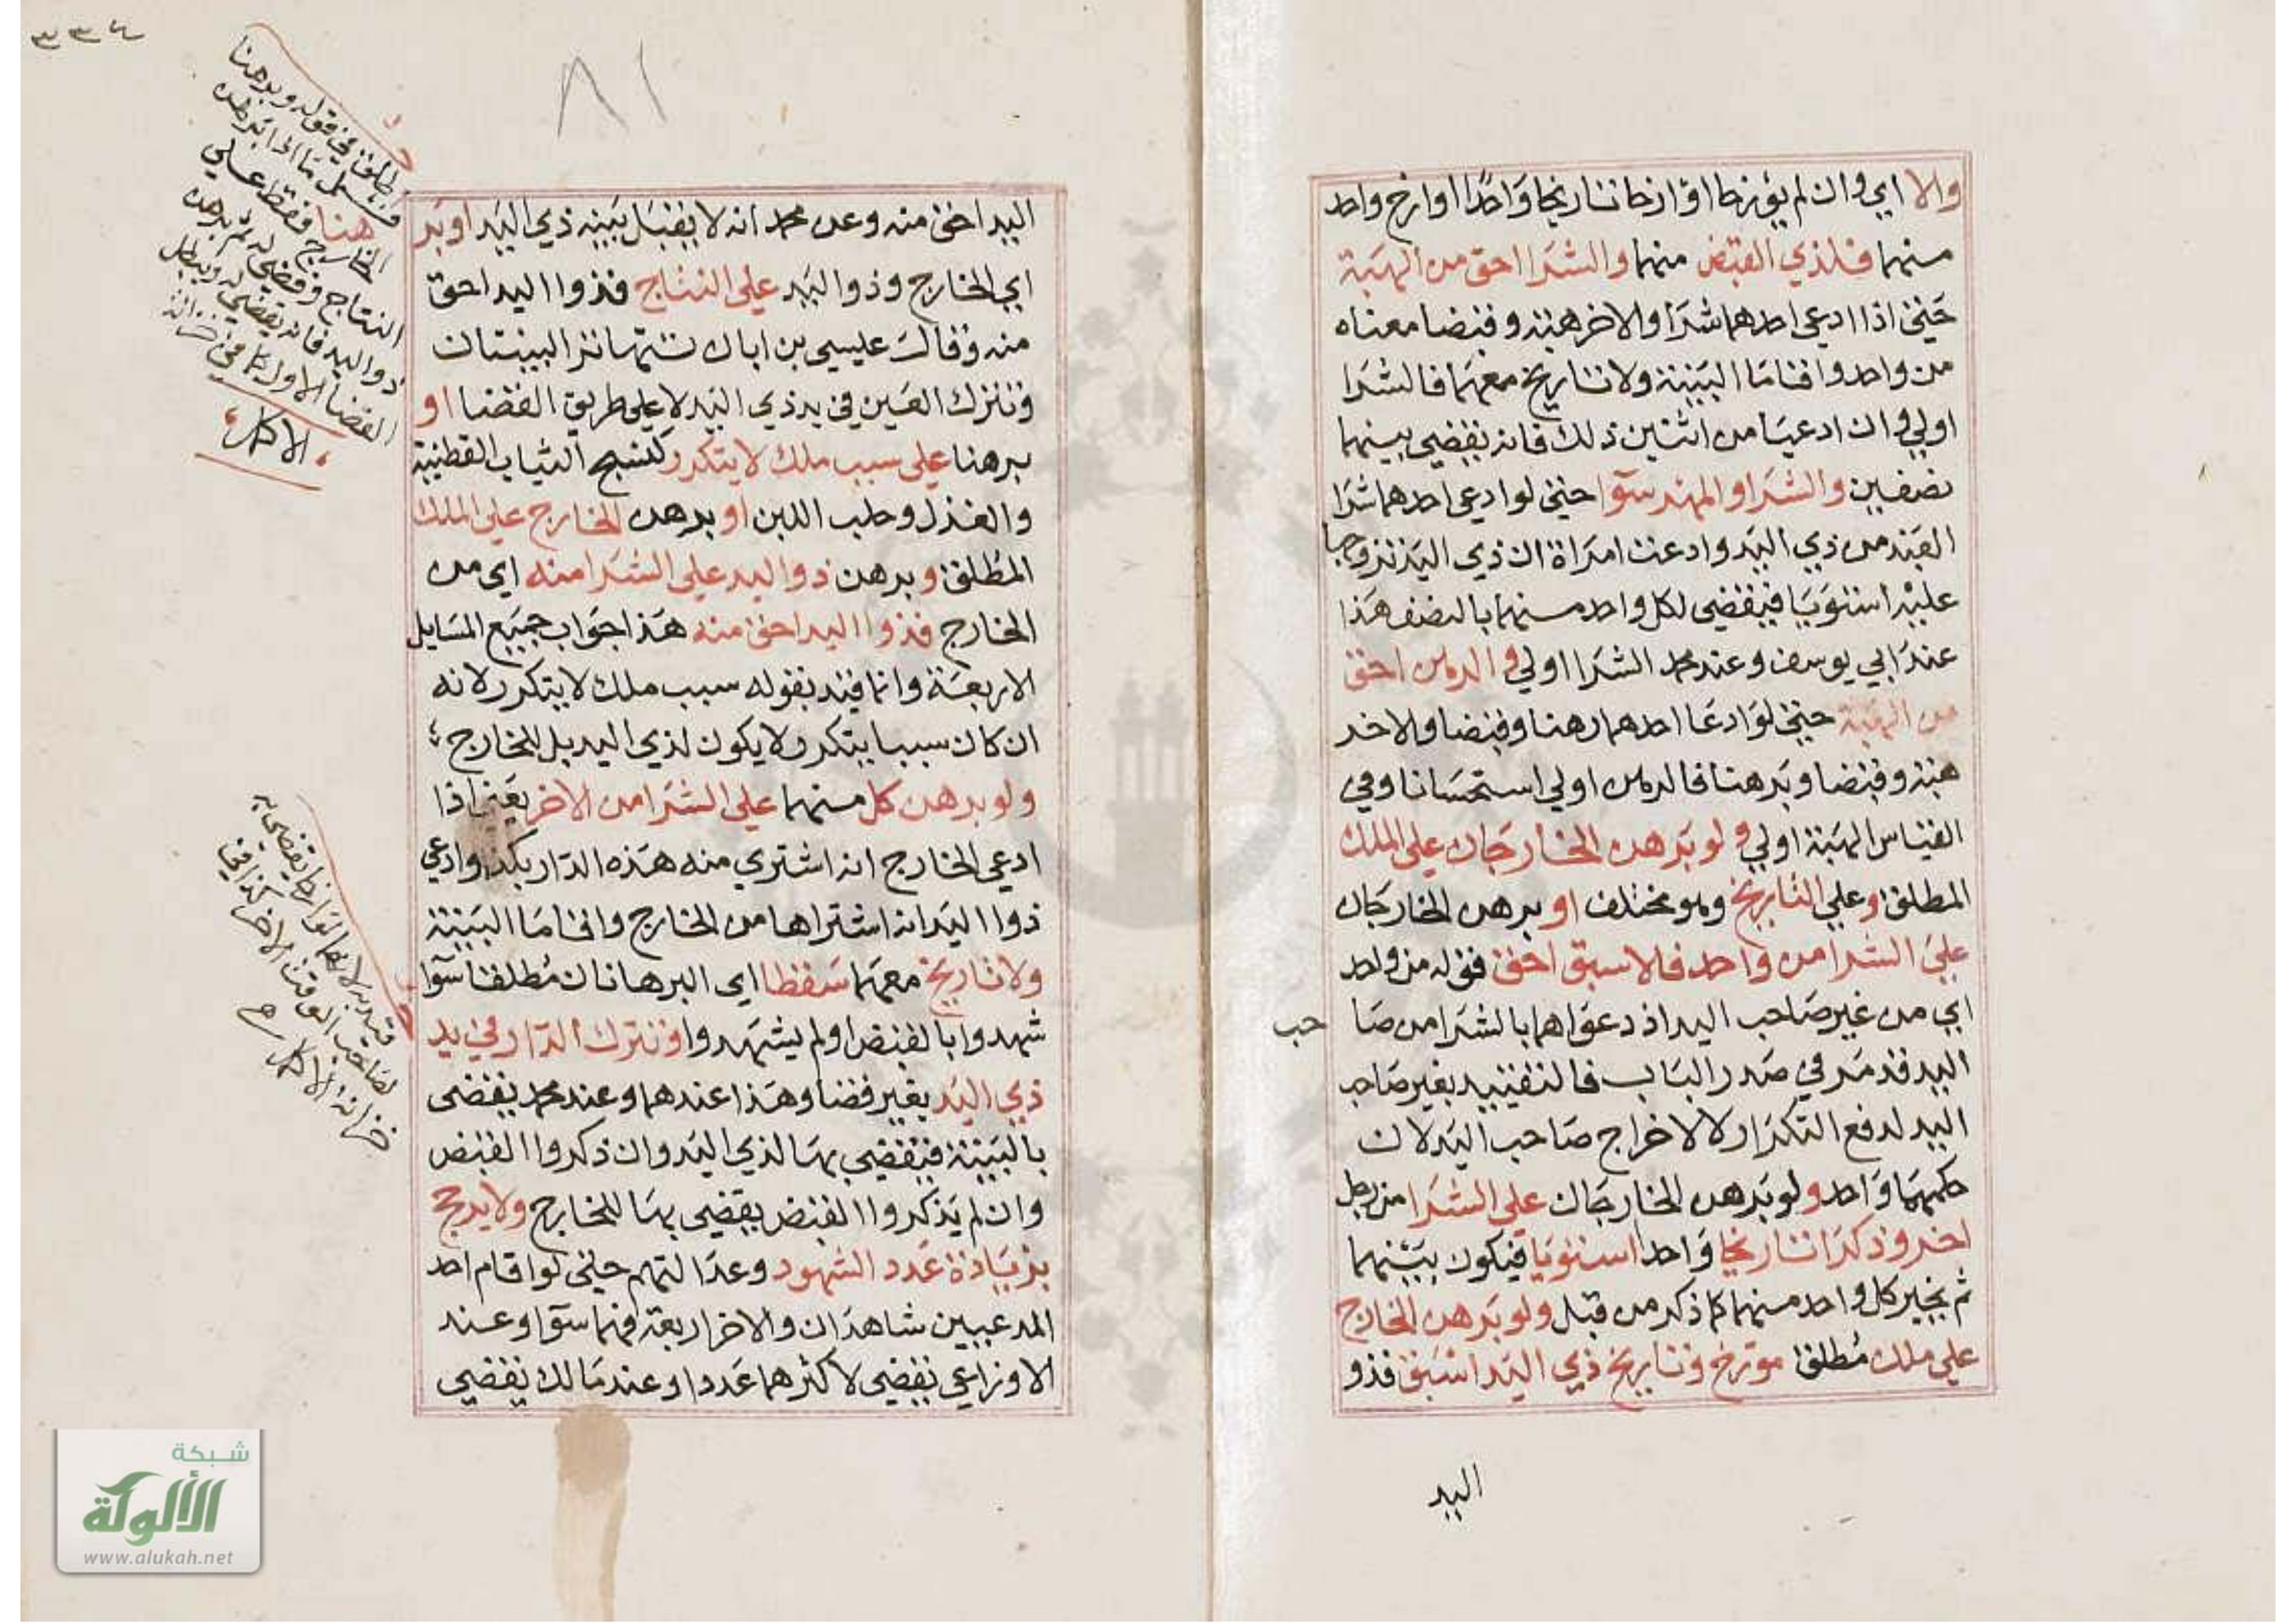 والا اي وان لم يؤرخا او ارخا تاريخا واحدا او ارخ واحد
منهما فلذي القبض منهما والشرا احق من الهبة
حتى اذا ادعى احدهما شرا والاخر هبة وقبضا معناه
من واحد واقاما البينة ولا تاريخ معهما فالشرا
اولي وان ادعيا من اثنين ذلك فانه يقضي بينهما
نصفين والشرا والمهر سوا حتى لو ادعى احدهما شرا
العبد من ذي اليد وادعت امراة ان ذي اليد تزوجها
عليه استويا فيقضى لكل واحد منهما بالنصف هذا
عند ابي يوسف وعند محمد الشرا اولي والرهن احق
من الهبة حتى لو ادعا احدهما رهنا وقبضا والاخر
هبة وقبضا وبرهنا فالرهن اولي استحسانا وفي
القياس الهبة اولي ولو برهن الخارجان على الملك
المطلق وعلى التاريخ وهو مختلف او برهن الخارجان
على الشرا من واحد فالاسبق احق قوله من واحد
اي من غير صاحب اليد اذ دعواهما بالشرا من صا حب
اليد قد مر في صدر الباب فالتقييد بغير صاحب
اليد لدفع التكرار لا لاخراج صاحب اليد لان
حكمهما واحد ولو برهن الخارجان على الشرا من رجل
اخر وذكرا تاريخا واحدا استويا فيكون بينهما
ثم يخير كل واحد منهما كما ذكر من قبل ولو برهن الخارج
على ملك مطلق مورخ وتاريخ ذي اليد اسبق فذو
اليد
٣٣٤
٨١
اليد احق منه وعن محمد انه لا يقبل بينه ذي اليد او بر
اي الخارج وذو اليد علي النتاج فذوا اليد احق
منه وقال عيسى بن ابان تتهاتر البينتان
وتترك العين في يد ذي اليد لا على طريق القضا او
برهنا على سبب ملك لا يتكرر كنسج الثياب القطنية
والغزل وحلب اللبن او برهن الخارج على الملك
المطلق وبرهن ذو اليد على الشرا منه اي من
الخارج فذوا اليد احق منه هذا جواب جميع المسايل
الاربعة وانما قيد بقوله سبب ملك لا يتكرر لانه
ان كان سببا يتكرر لا يكون لذي اليد بل للخارج
ولو برهن كل منهما على الشرا من الاخر يعني اذا
ادعى الخارج انه اشتري منه هذه الدار بكذا وادعى
ذوا اليد انه اشتراها من الخارج واقاما البينة
ولا تاريخ معهما سقطا اي البرهانان مطلقا سوا
شهدوا بالقبض او لم يشهدوا وتترك الدار في يد
ذي اليد بغير قضا وهذا عندهما وعند محمد يقضى
بالبينة فيقضي بها لذي اليد وان ذكروا القبض
وان لم يذكروا القبض يقضى بها للخارج ولا يرجح
بزيادة عدد الشهود وعدالتهم حتى لو اقام احد
المدعيين شاهدان والاخر اربعة فهما سوا وعند
الاوزاعي يقضى لاكثرهما عددا وعند مالك يقضي
اطلق في قوله وبرهنا
فشمل ما اذا برهن
الخارج فقط على
النتاج وقضي له ثم برهن
ذو اليد فانه يقضي له ويبطل
القضا الاول كما في خزانة
الاكمل
قيد به لانهما لو ارخا يقضى به
لصاحب الوقت الاخر كذا في
خزانة الاكمل
شبكة
الألوكة
www.alukah.net